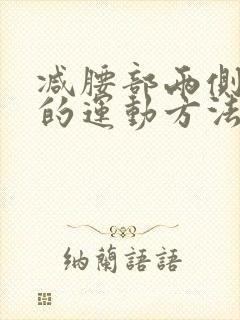 减腰部兩側
的運動方法
納蘭語語